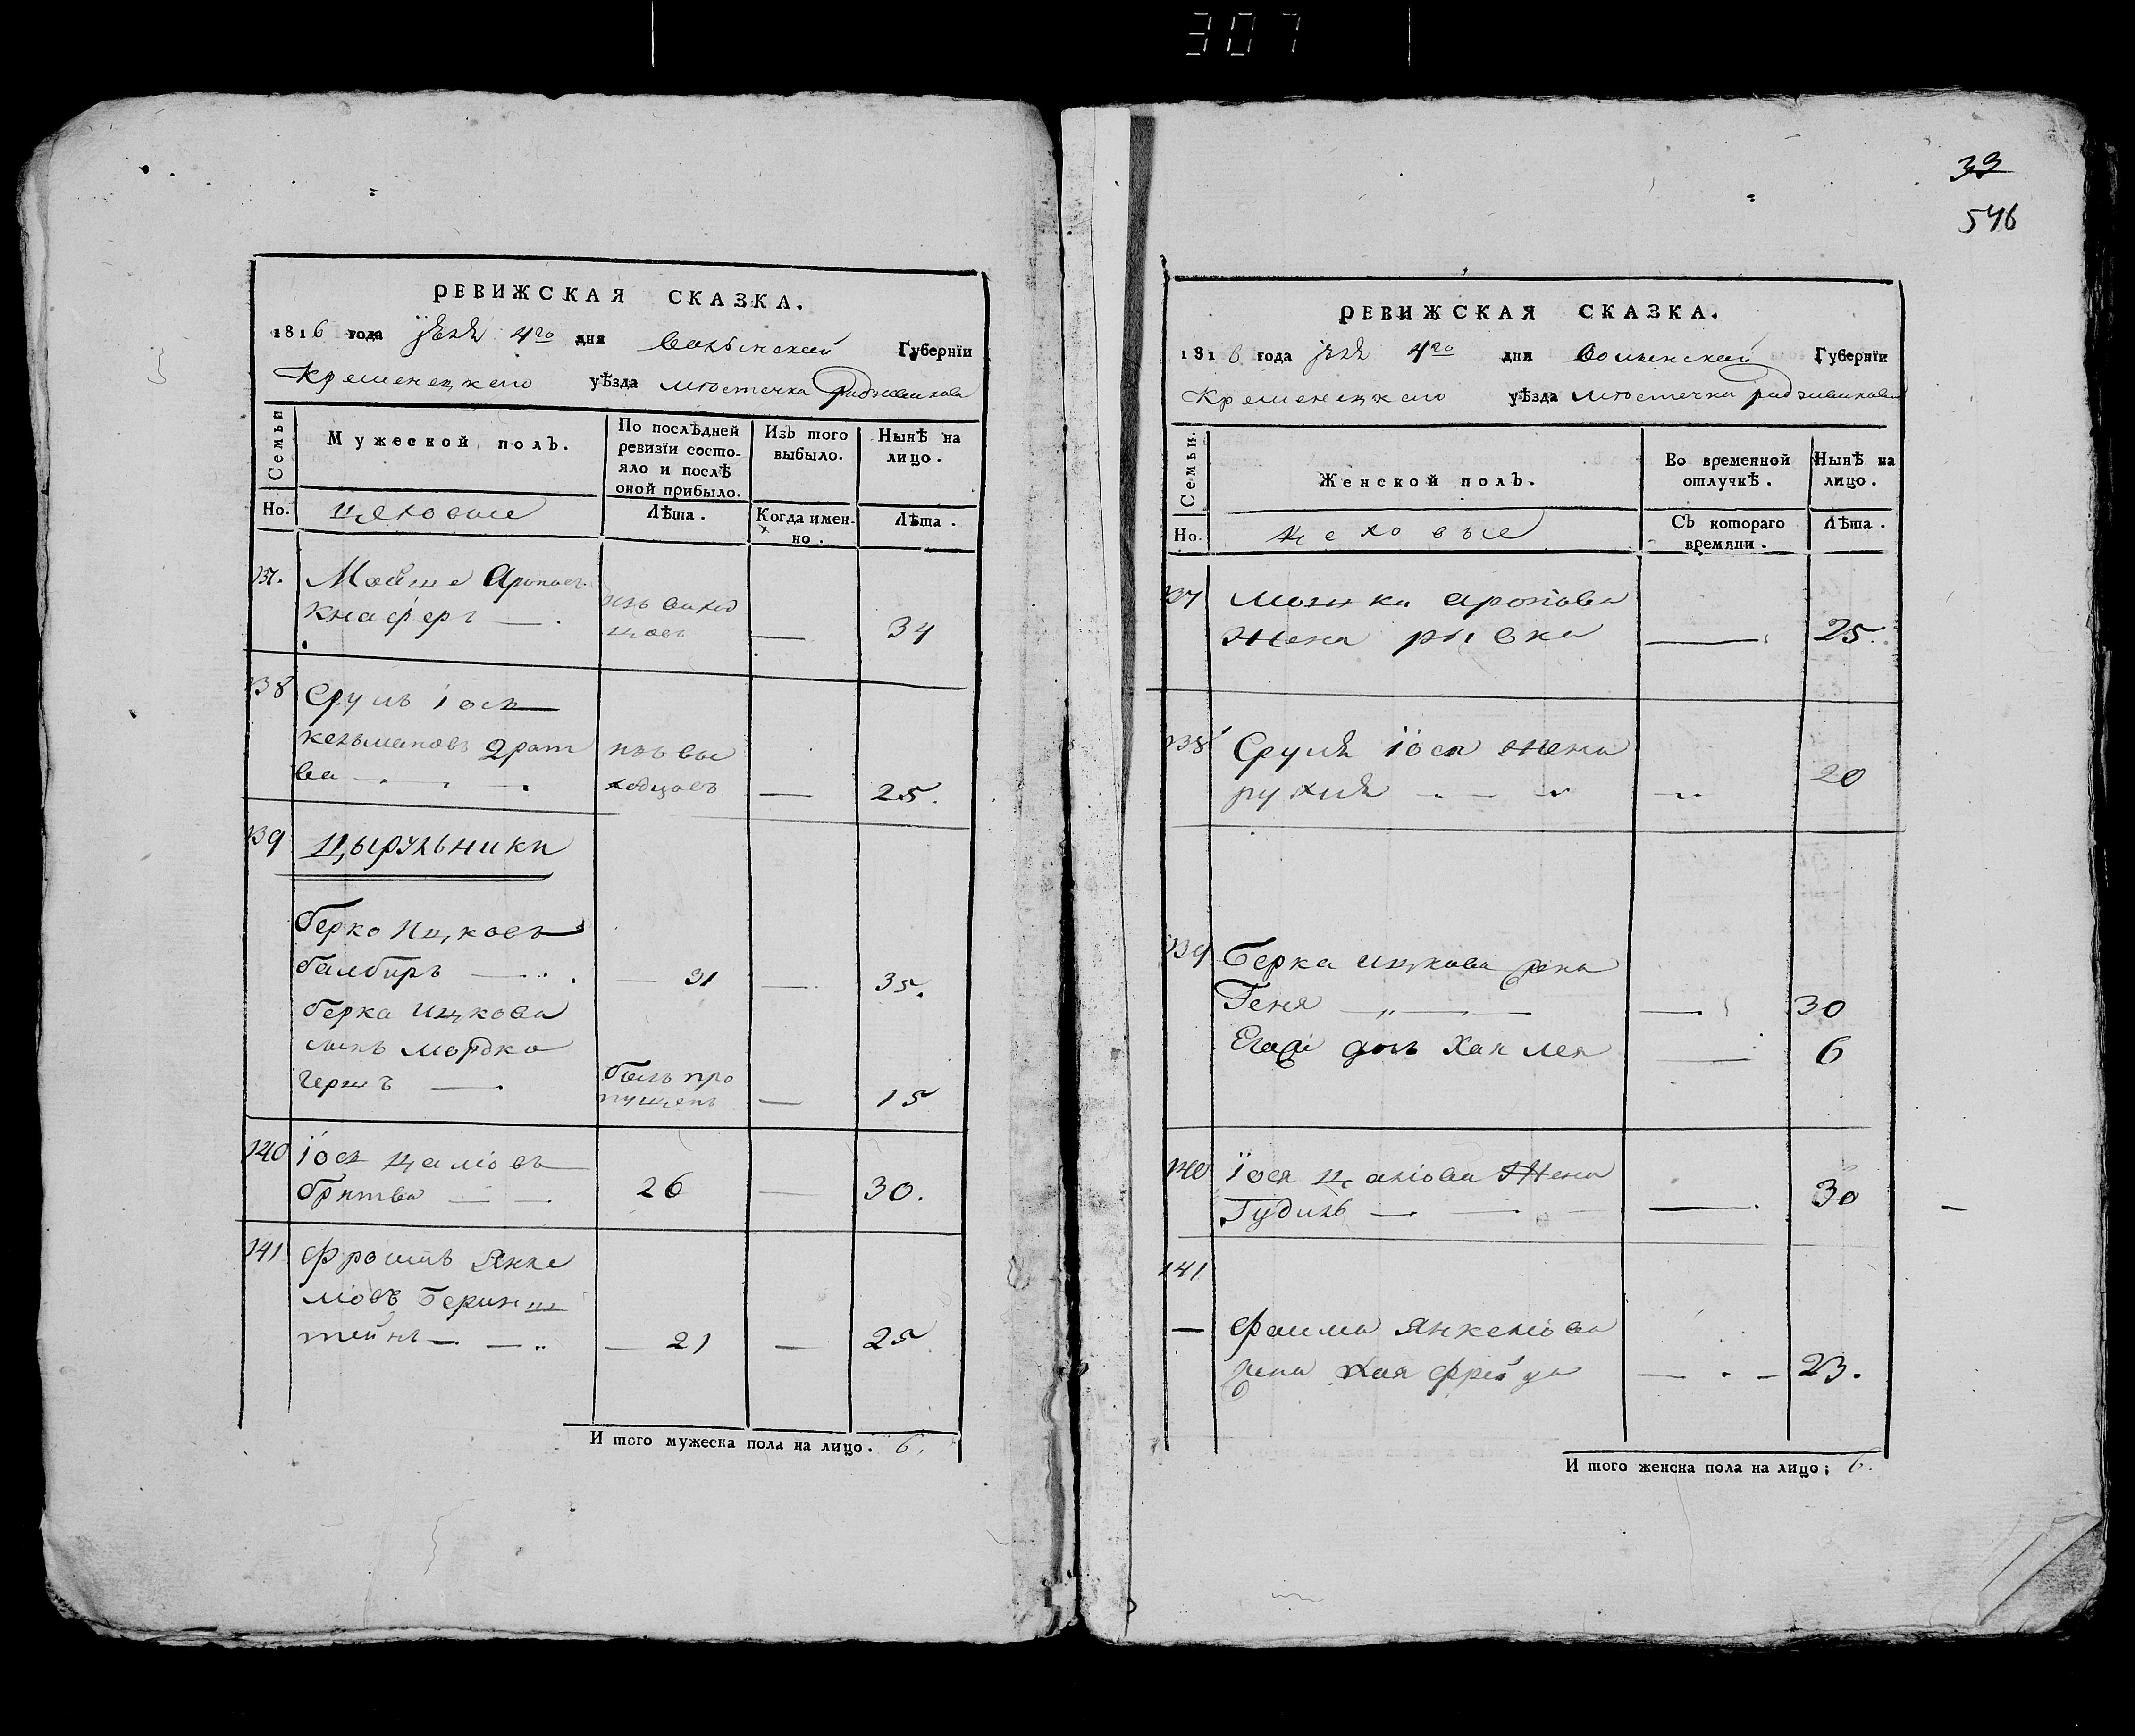 307
РЕВИЖСКАЯ СКАЗКА.
1816 года 4го дня Волынской Губернїи
Кременецкаго уѣзда мѣстечка Радзивилова
Семьи
Мужеской полъ.
По послѣдней ревизїи состо-
яло и послѣ
оной прибыло.
Изъ того
выбыло.
Нынѣ на
лицо.
Но.
цеховые
Лѣта.
Когда имен-
но.
Лѣта.
137. Мойше Ароновъ
Кнаферъ — изъ выход
цовъ — 34
138 Сруль Iось
Кельмановъ изъ вы
ва — ходцовъ — 25.
139 Цырульники
Берко Ицковъ
Балбиръ — 31 — 35.
Берка Ицкова
сынъ Мордко
Гершъ — былъ про
пущенъ — 15
140 Iось
бритва — 26 — 30.
141 Янке
лiовъ Беринш
тейнъ — 21 — 25
И того мужеска пола на лицо. 6.
33
546
РЕВИЖСКАЯ СКАЗКА.
1816 года 4го дня Волынской Губернїи
Кременецкаго уѣзда мѣстечка Радзивилова
Семьи.
Женской полъ.
Во временной
отлучкѣ.
Нынѣ на
лицо.
Но.
цеховые
Съ котораго
времяни.
Лѣта.
137 Мошка Аронова
жена Рывка — 25.
138 Сруля Iося жена
Рухля — 20
139 Берка Ицкова жена
Геня — 30
Егo дочь Хая Лея — 6
140 Їося жена
Гудиль — 30
141
— Янкелiова
жена Хая Фрейда — 23.
И того женска пола на лицо; 6.